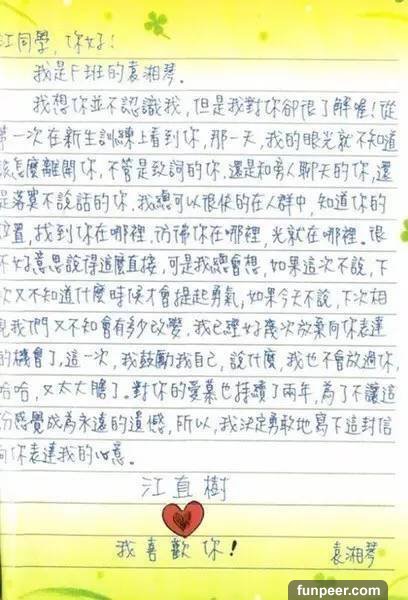 江同學,你好!
我是F班的袁湘琴。
我想你並不認識我,但是我對你卻很了解喔!從
第一次在新生訓練上看到你,那一天,我的眼光就不知道
該怎麼離開你,不管是致詞的你,還是和旁人聊天的你,還
是落寞不說話的你,我總可以很快的在人群中,知道你的
位置,找到你在哪裡,彷彿你在哪裡,光就在哪裡。很
不好意思說得這麼直接,可是我總會想,如果這次不說,下
次又不知道什麼時候才會提起勇氣,如果今天不說,下次相
見我們又不知會有多少改變,我已經好幾次放棄向你表達
的機會了,這一次,我鼓勵我自己,說什麼,我也不會放過你,
哈哈,又太大膽了。對你的愛慕也持續了兩年,為了不讓這
份感覺成為永遠的遺憾,所以,我決定勇敢地寫下這封信
向你表達我的心意。
江直樹
我喜歡你!
袁湘琴
funpeer.com